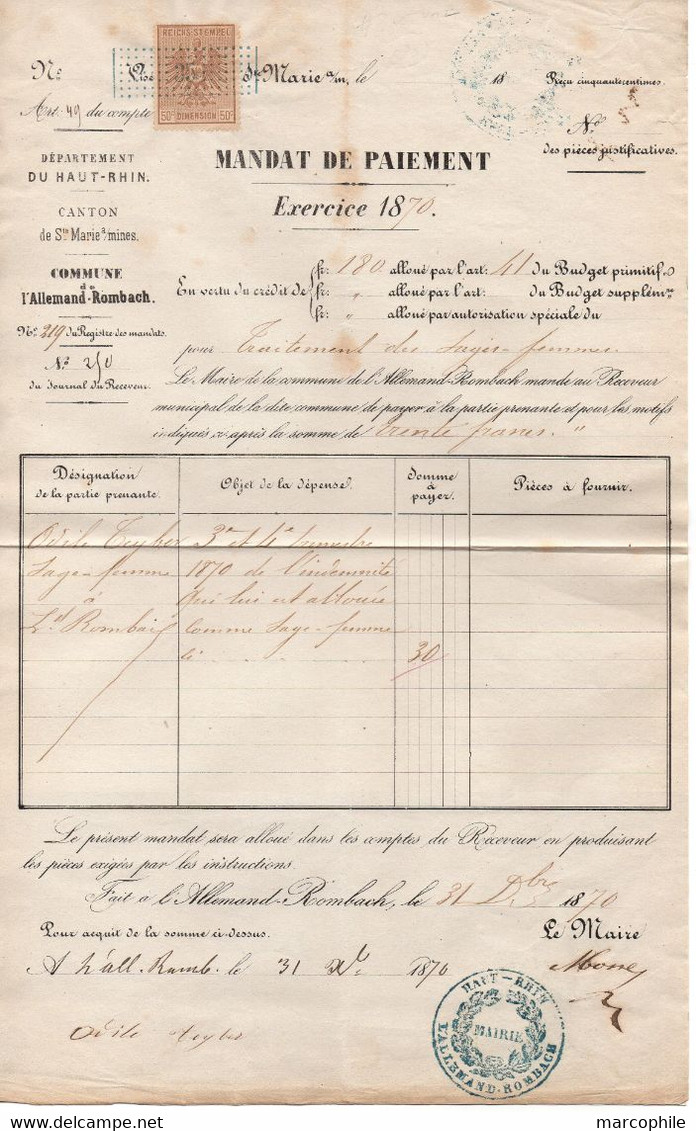 REICHS-STEMPEL
50c DIMENSION 50c
No
Vise
Ste Marie a/m, le
18
Reçu cinquante centimes.
Art. 49 du compte
No
des pièces justificatives.
DÉPARTEMENT
DU HAUT-RHIN.
CANTON
de Ste Marie a/mines.
COMMUNE
de
l'Allemand-Rombach.
No 219 du Registre des mandats.
No 210
du Journal du Receveur.
MANDAT DE PAIEMENT
Exercice 1870.
En vertu du crédit de
fr: 180 alloué par l'art: 41 du Budget primitif
fr: " alloué par l'art: du Budget supplém.re
fr: " alloué par autorisation spéciale du
pour Traitement des sages-femmes
Le Maire de la commune de l'Allemand-Rombach mande au Receveur
municipal de la dite commune de payer à la partie prenante et pour les motifs
indiqués ci après la somme de trente francs. "
Désignation
de la partie prenante.
Objet de la dépense.
Somme
à
payer.
Pièces à fournir.
Odile Teyher
Sage-femme
à
L'd Rombach
3e et 4e trimestre
1870 de l'indemnité
qui lui est allouée
comme sage-femme
ci . . .
30
Le présent mandat sera alloué dans les comptes du Receveur en produisant
les pièces exigées par les instructions.
Fait à l'Allemand-Rombach, le 31 Dbre 1870
Pour acquit de la somme ci-dessus.
Le Maire
A L'all. Romb. le 31 Xbre 1870
Odile Teyher
HAUT-RHIN
MAIRIE
L'ALLEMAND-ROMBACH
marcophile